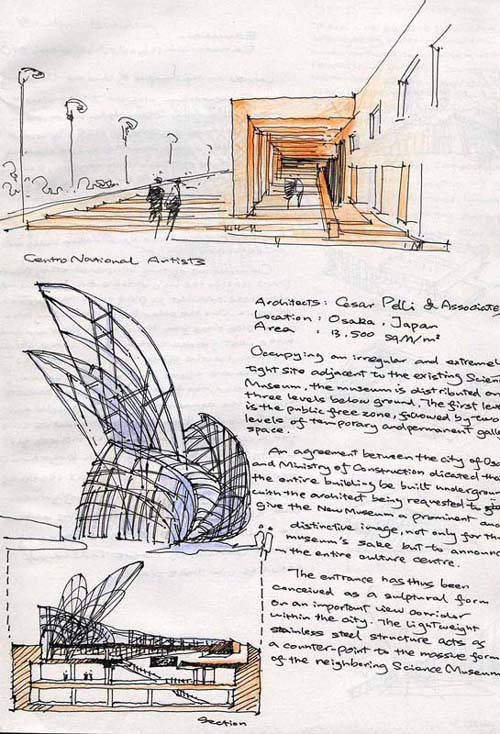 Centro National Artists
Architects : Cesar Pelli & Associate
Location : Osaka, Japan
Area : 13,500 sq/M/m²
Occupying an irregular and extreme
tight site adjacent to the existing Scien
Museum, the museum is distributed on
three levels below ground. The first lev
is the public free zone, followed by two
levels of temporary and permanent galle
space.
An agreement between the city of Os
and Ministry of Construction dicated tha
the entire building be built undergroun
with the architect being requested to giv
give the New Museum a prominent and
distinctive image, not only for the
museum's sake but to announc
the entire culture centre.
The entrance has thus been
conceived as a sculptural form
on an important view corridor
within the city. The lightweight
stainless steel structure acts as
a counter-point to the massive form
of the neighboring Science Museum
Section